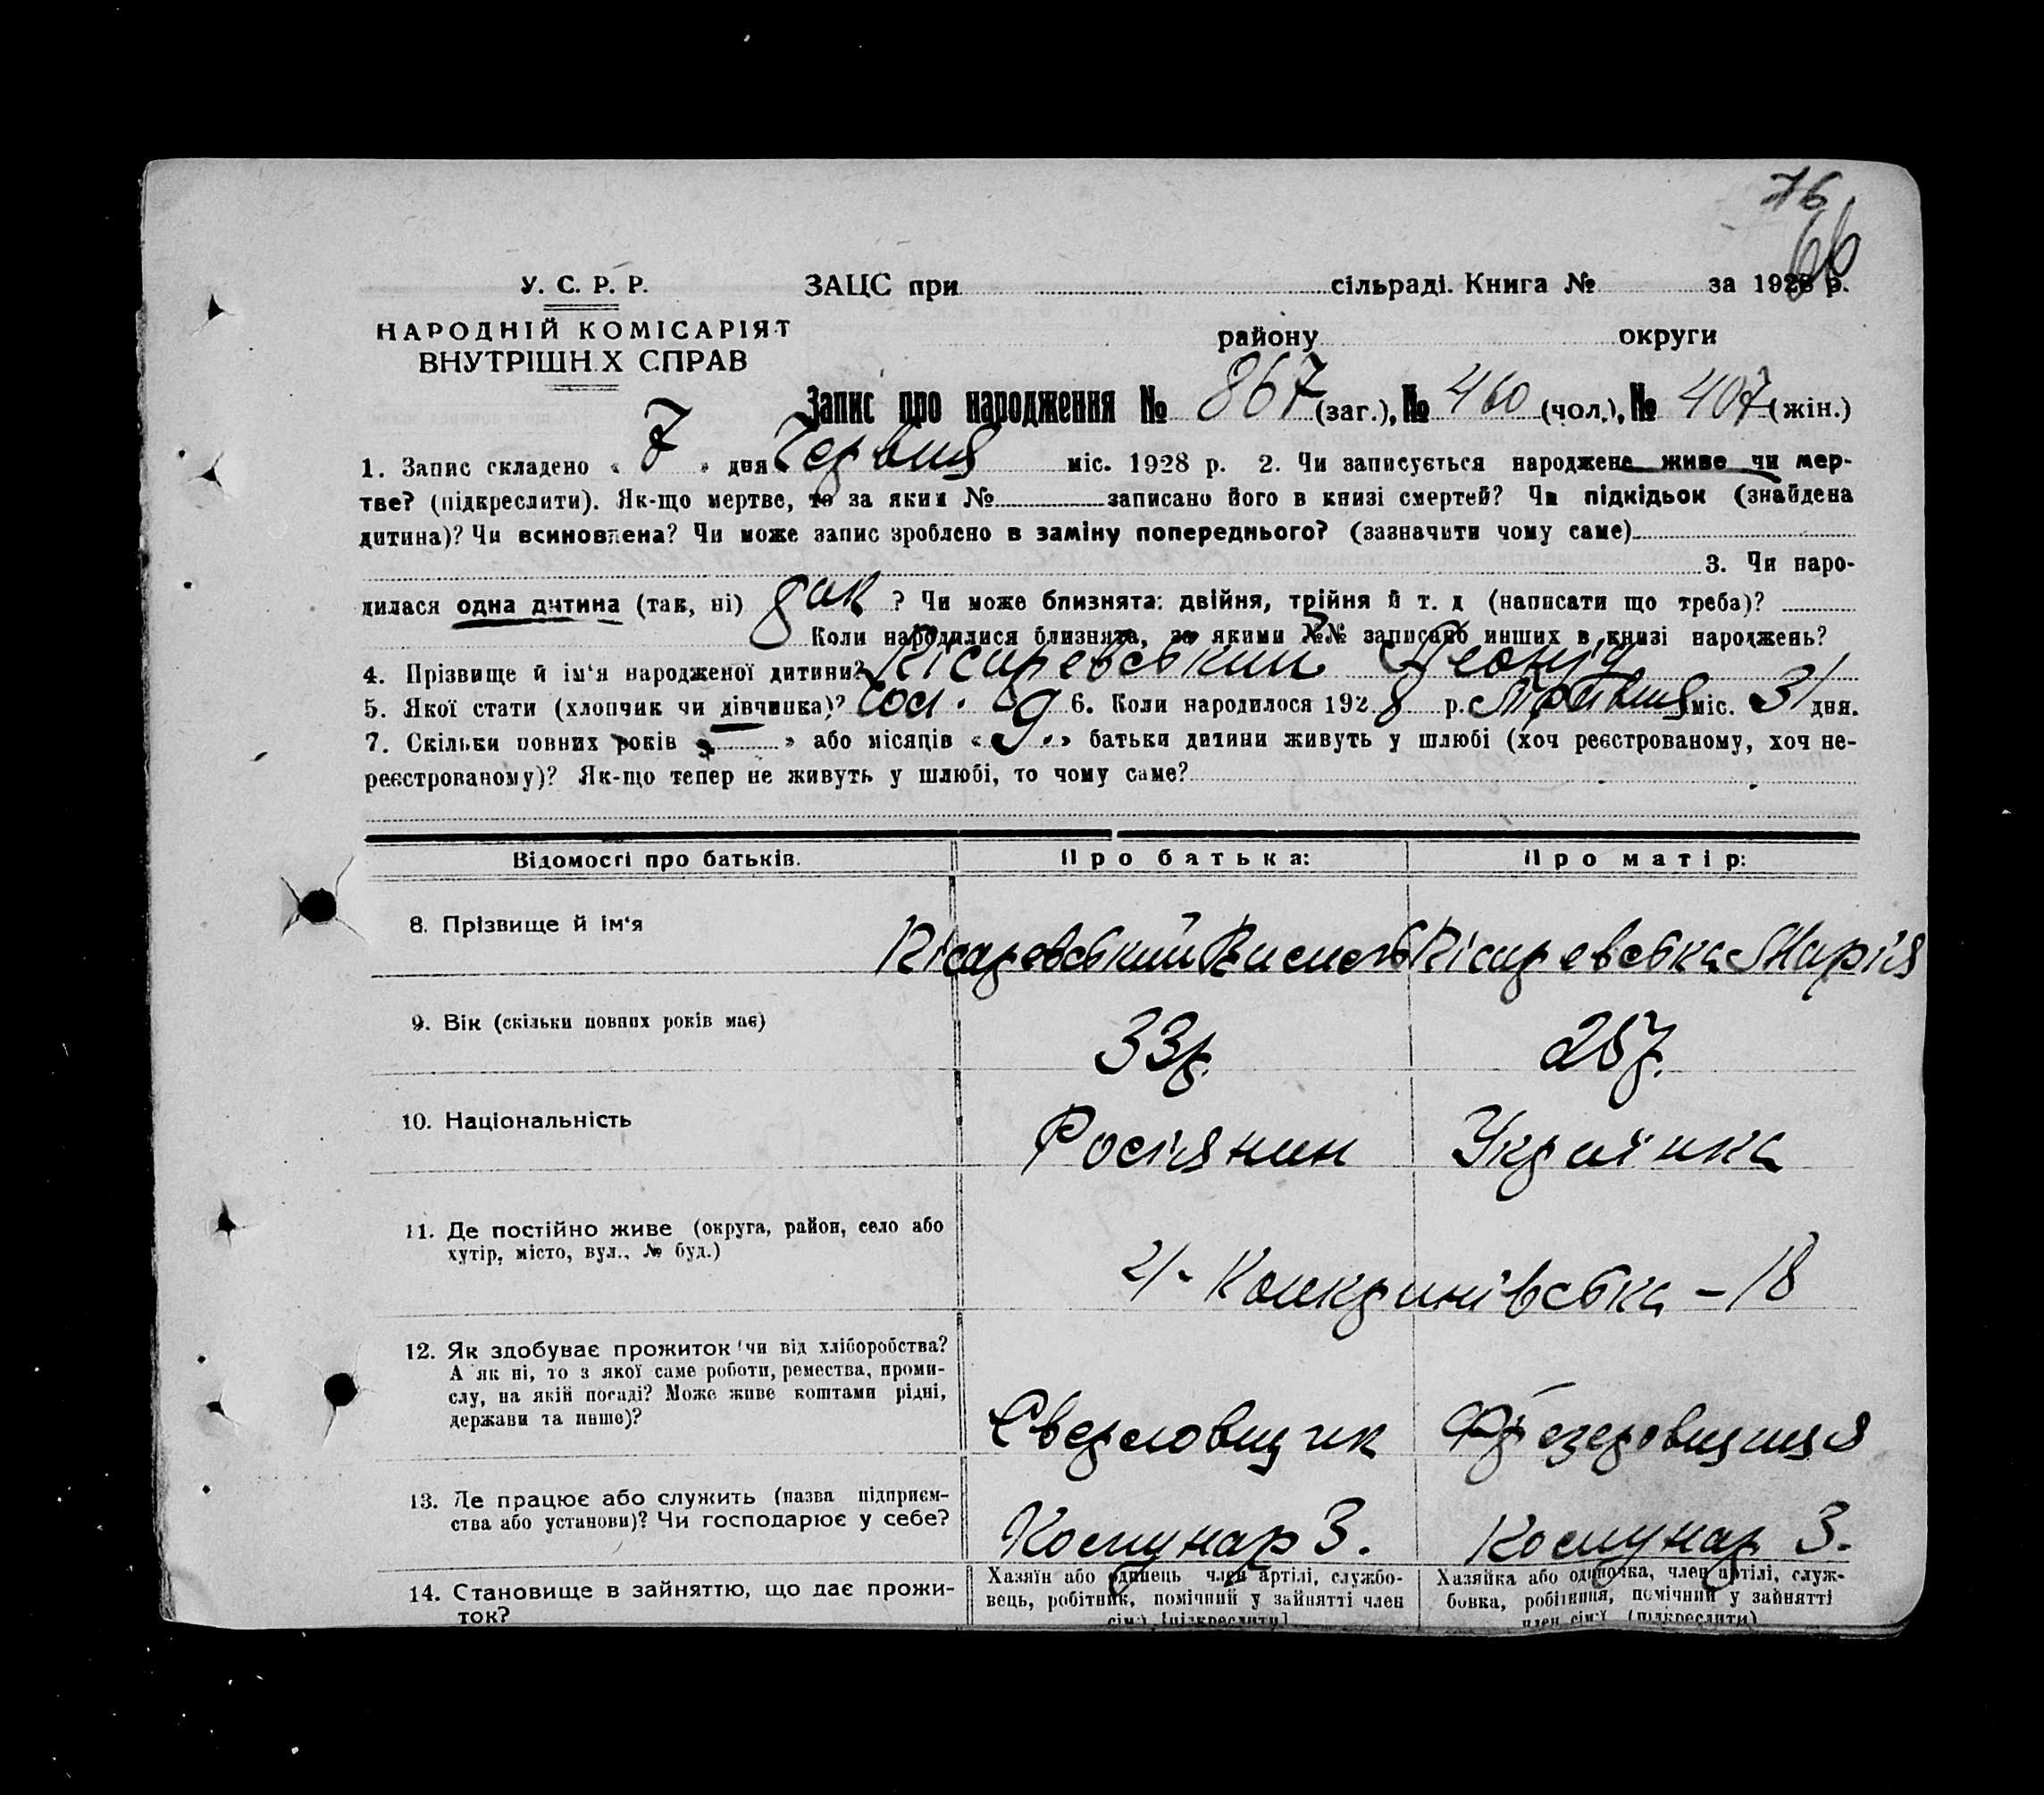 76
66
У. С. Р. Р.
ЗАЦС при сільраді. Книга № за 1928 р.
НАРОДНІЙ КОМІСАРІЯТ
ВНУТРІШН Х СПРАВ
району округи
Запис про народження № 867 (заг.), № 460 (чол.), № 407 (жін.)
1. Запис складено « 7 » дня Червня міс. 1928 р. 2. Чи записується народжене живе чи мер-
тве? (підкреслити). Як-що мертве, то за яким № записано його в книзі смертей? Чи підкідьок (знайдена
дитина)? Чи всиновлена? Чи може запис зроблено в заміну попереднього? (зазначити чому саме)
3. Чи наро-
дилася одна дитина (так, ні) ? Чи може близнята: двійня, трійня й т. д (написати що треба)?
Коли народилися близнята, за якими №№ записано инших в книзі народжень?
4. Прізвище й ім'я народженої дитини? Пісаревський Леонід
5. Якої стати (хлопчик чи дівчинка)? 6. Коли народилося 1928 р. Травня міс. 31 дня.
7. Скільки повних років « » або місяців « » батьки дитини живуть у шлюбі (хоч реєстрованому, хоч не-
реєстрованому)? Як-що тепер не живуть у шлюбі, то чому саме?
Відомості про батьків. Про батька: Про матір:
8. Прізвище й ім'я Пісаревський Пісаревська Марія
9. Вік (скільки повних років має) 33р.
10. Національність Росіянин Українка
11. Де постійно живе (округа, район, село або
хутір, місто, вул., № буд.)
– 18
12. Як здобуває прожиток (чи від хліборобства?
А як ні, то з якої саме роботи, ремества, проми-
слу, на якій посаді? Може живе коштами рідні,
держави та инше)?
Сверловщик Фрезеровщиця
13. Де працює або служить (назва підприєм-
ства або установи)? Чи господарює у себе?
Комунар З. Комунар З.
14. Становище в зайняттю, що дає прожи-
ток?
Хазяїн або одинець член артілі, службо-
вець, робітник, помічний у зайнятті член
сім'ї [підкреслити]
Хазяйка або одиночка, член артілі, служ-
бовка, робітниця, помічний у зайнятті
член сім'ї (підкреслити)